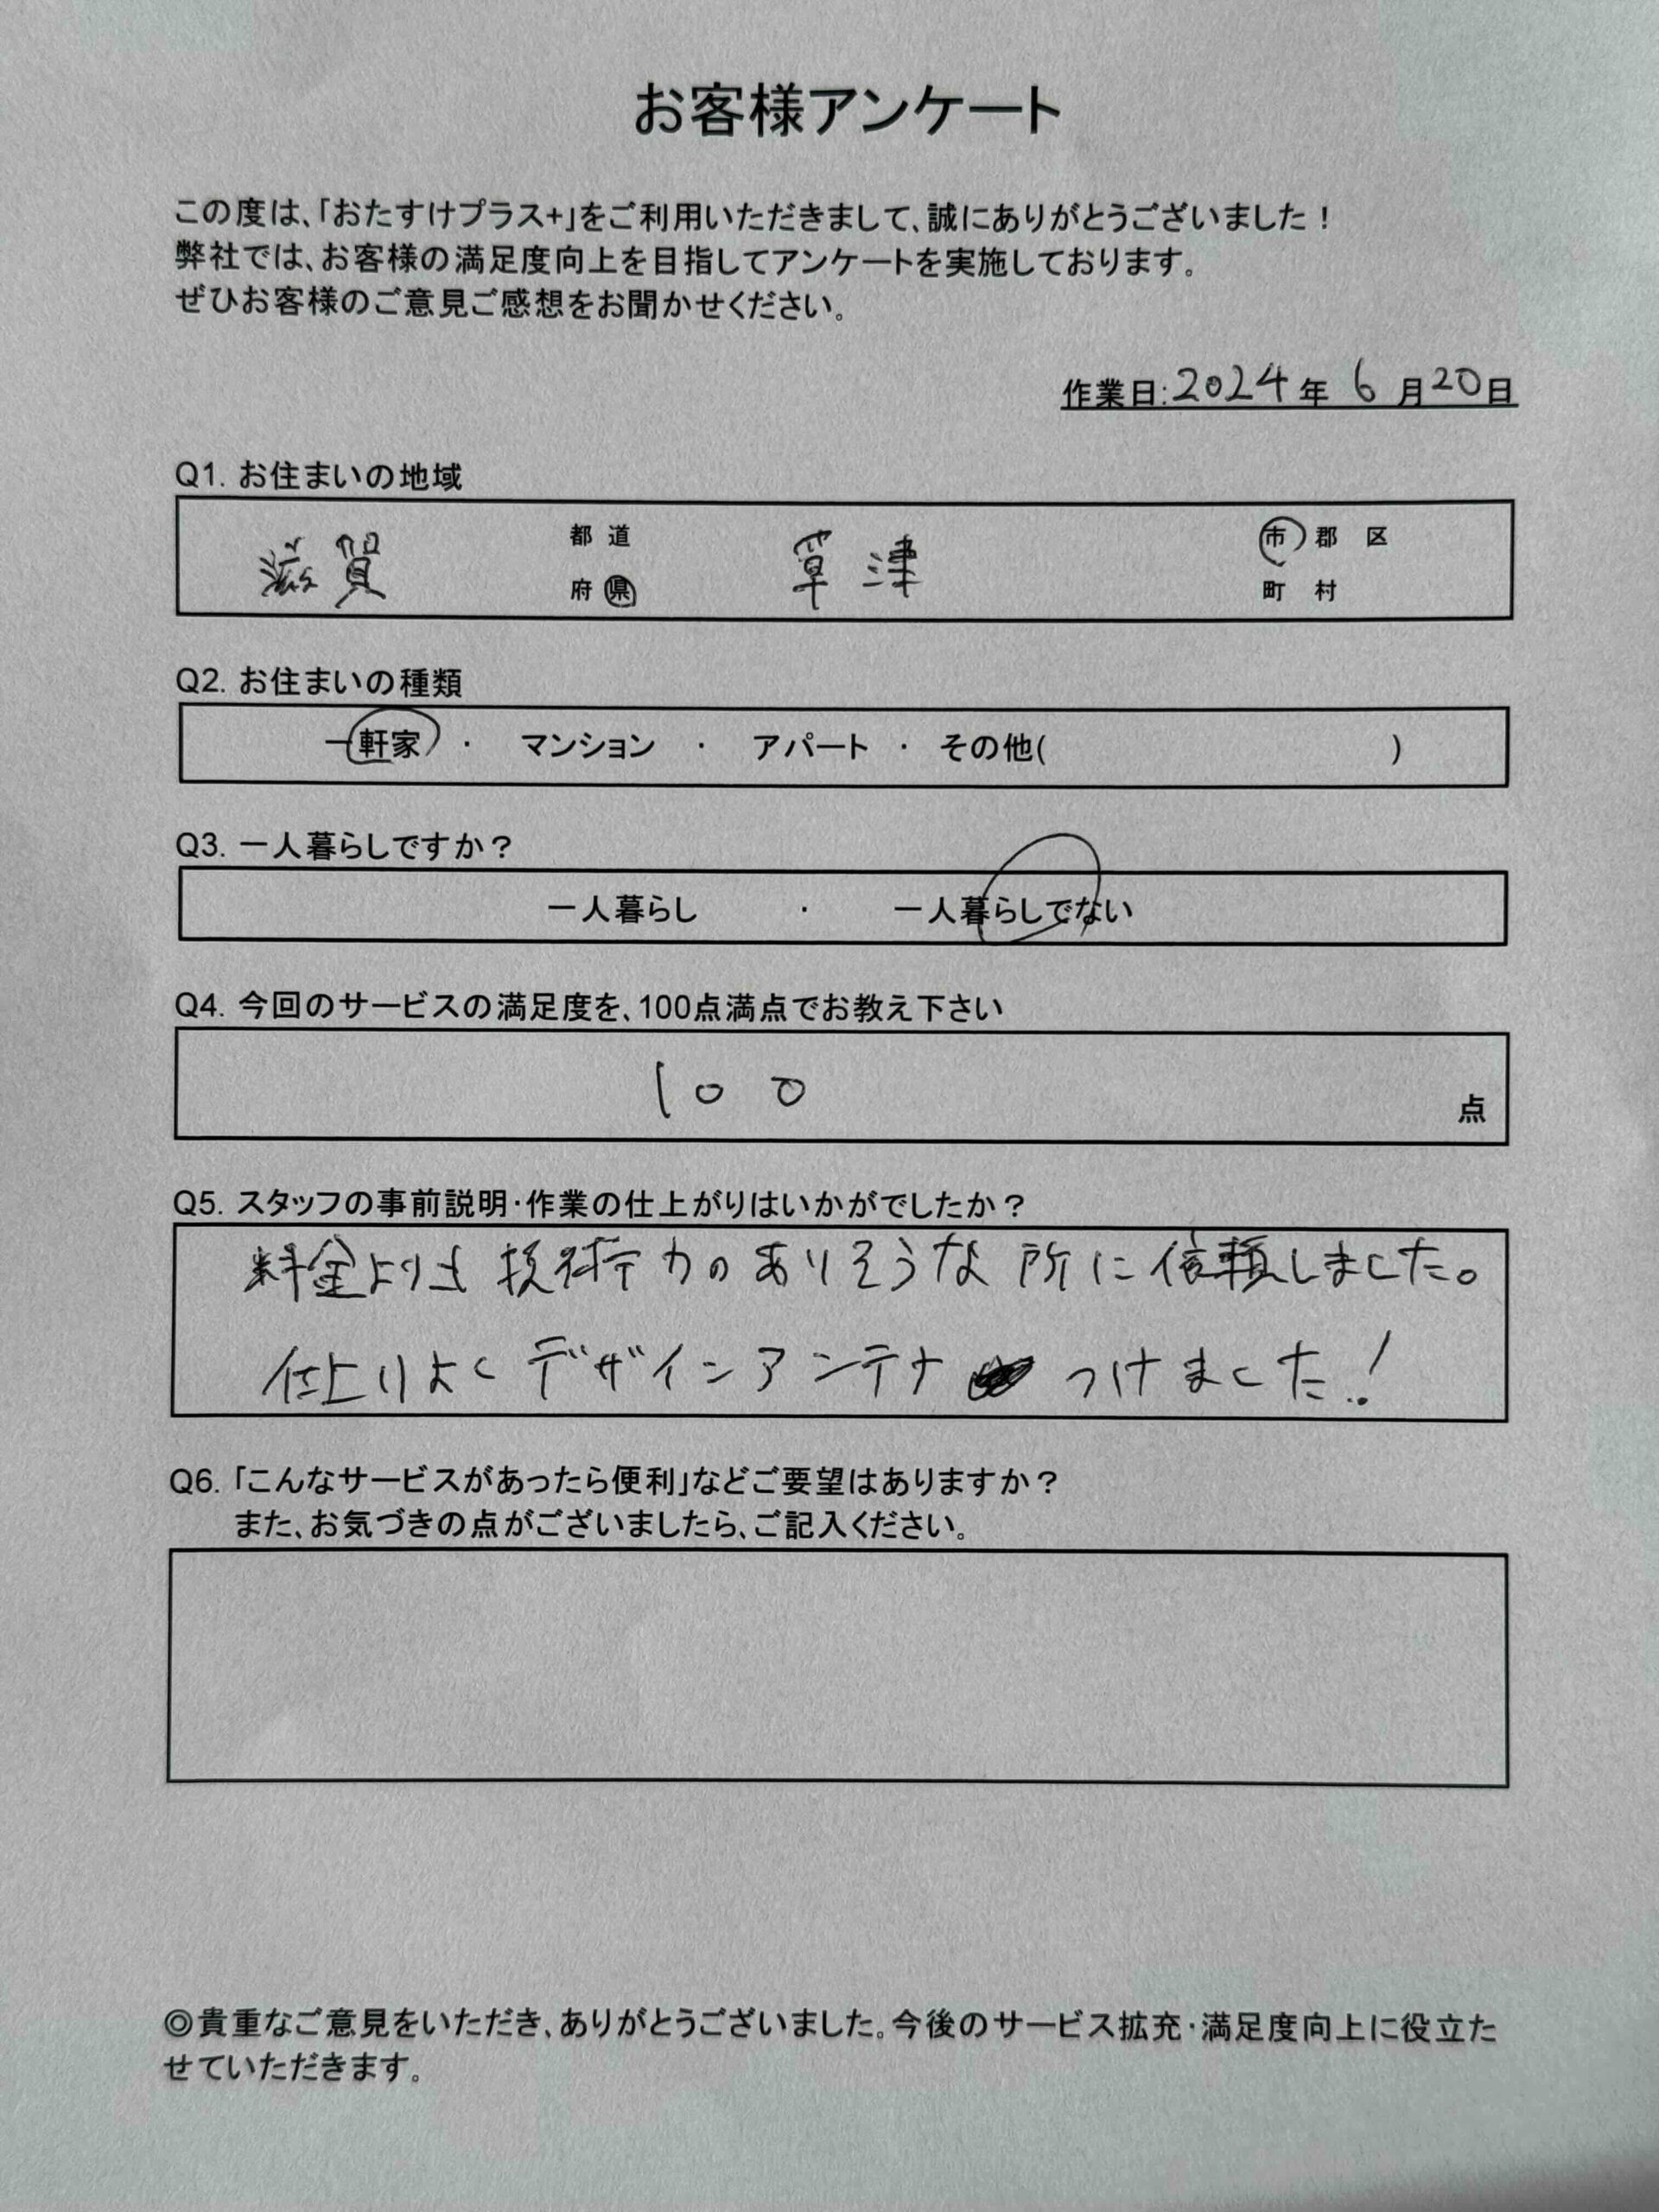 お客様アンケート
この度は、「おたすけプラス+」をご利用いただきまして、誠にありがとうございました！
弊社では、お客様の満足度向上を目指してアンケートを実施しております。
ぜひお客様のご意見ご感想をお聞かせください。
作業日:2024年 6月20日
Q1. お住まいの地域
滋賀 都 道 草津 市 郡 区
府 県 町 村
Q2. お住まいの種類
一軒家 ・ マンション ・ アパート ・ その他( )
Q3. 一人暮らしですか？
一人暮らし ・ 一人暮らしでない
Q4. 今回のサービスの満足度を、100点満点でお教え下さい
100 点
Q5. スタッフの事前説明・作業の仕上がりはいかがでしたか？
料金よりも 技術力のありそうな所に依頼しました。
仕上りよく デザインアンテナ つけました！
Q6. 「こんなサービスがあったら便利」などご要望はありますか？
また、お気づきの点がございましたら、ご記入ください。
◎貴重なご意見をいただき、ありがとうございました。今後のサービス拡充・満足度向上に役立た
せていただきます。